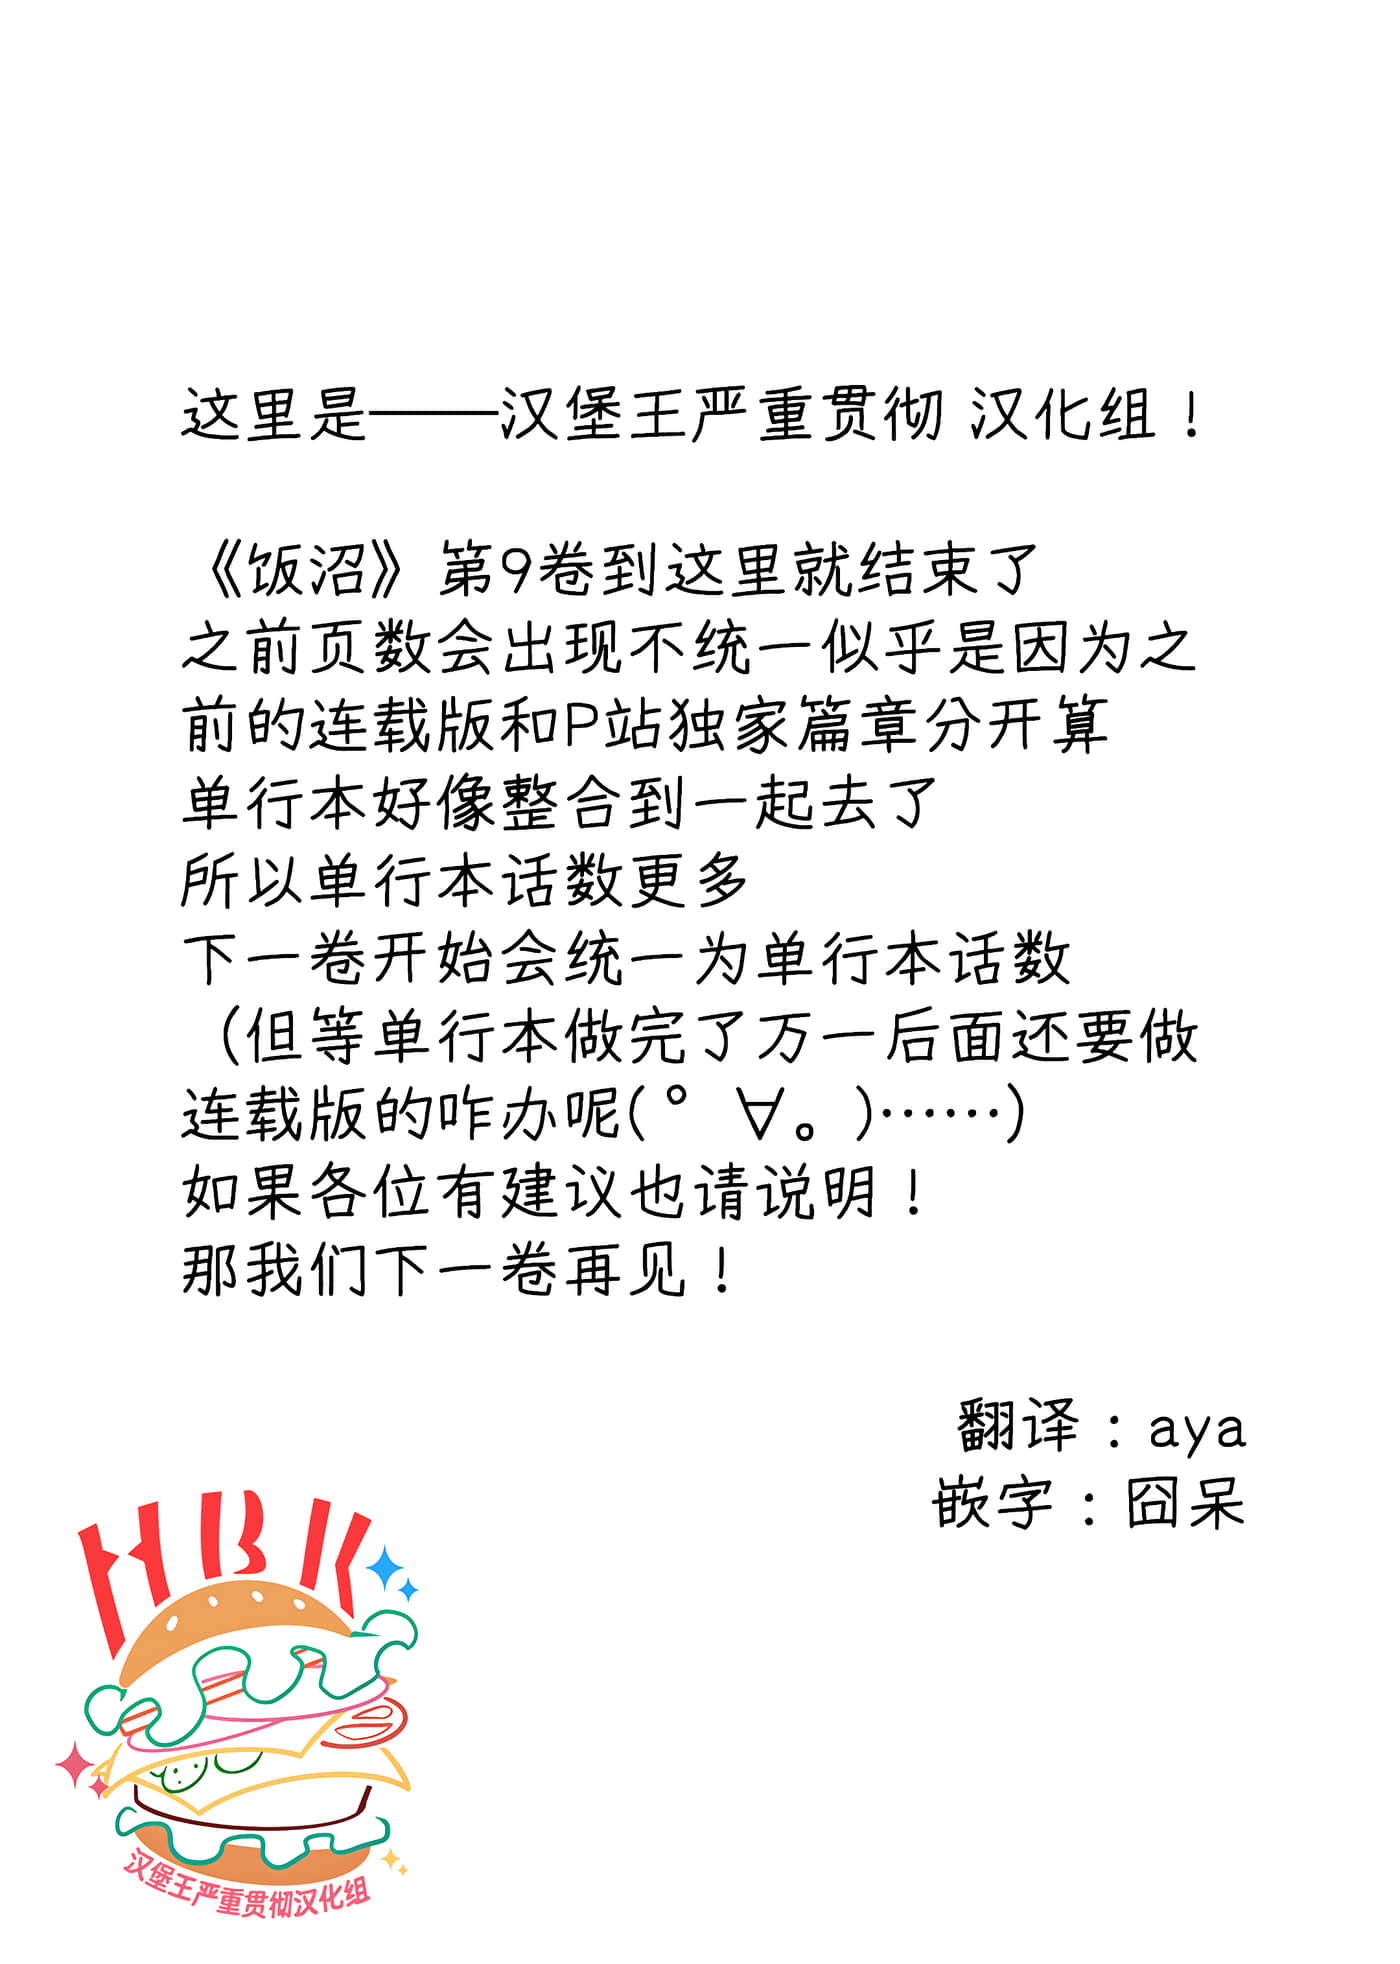 这里是——汉堡王严重贯彻 汉化组！
《饭沼》第9卷到这里就结束了
之前页数会出现不统一似乎是因为之
前的连载版和P站独家篇章分开算
单行本好像整合到一起去了
所以单行本话数更多
下一卷开始会统一为单行本话数
（但等单行本做完了万一后面还要做
连载版的咋办呢(゜∀。)……)
如果各位有建议也请说明！
那我们下一卷再见！
翻译：aya
嵌字：囧呆
HBK
汉堡王严重贯彻汉化组